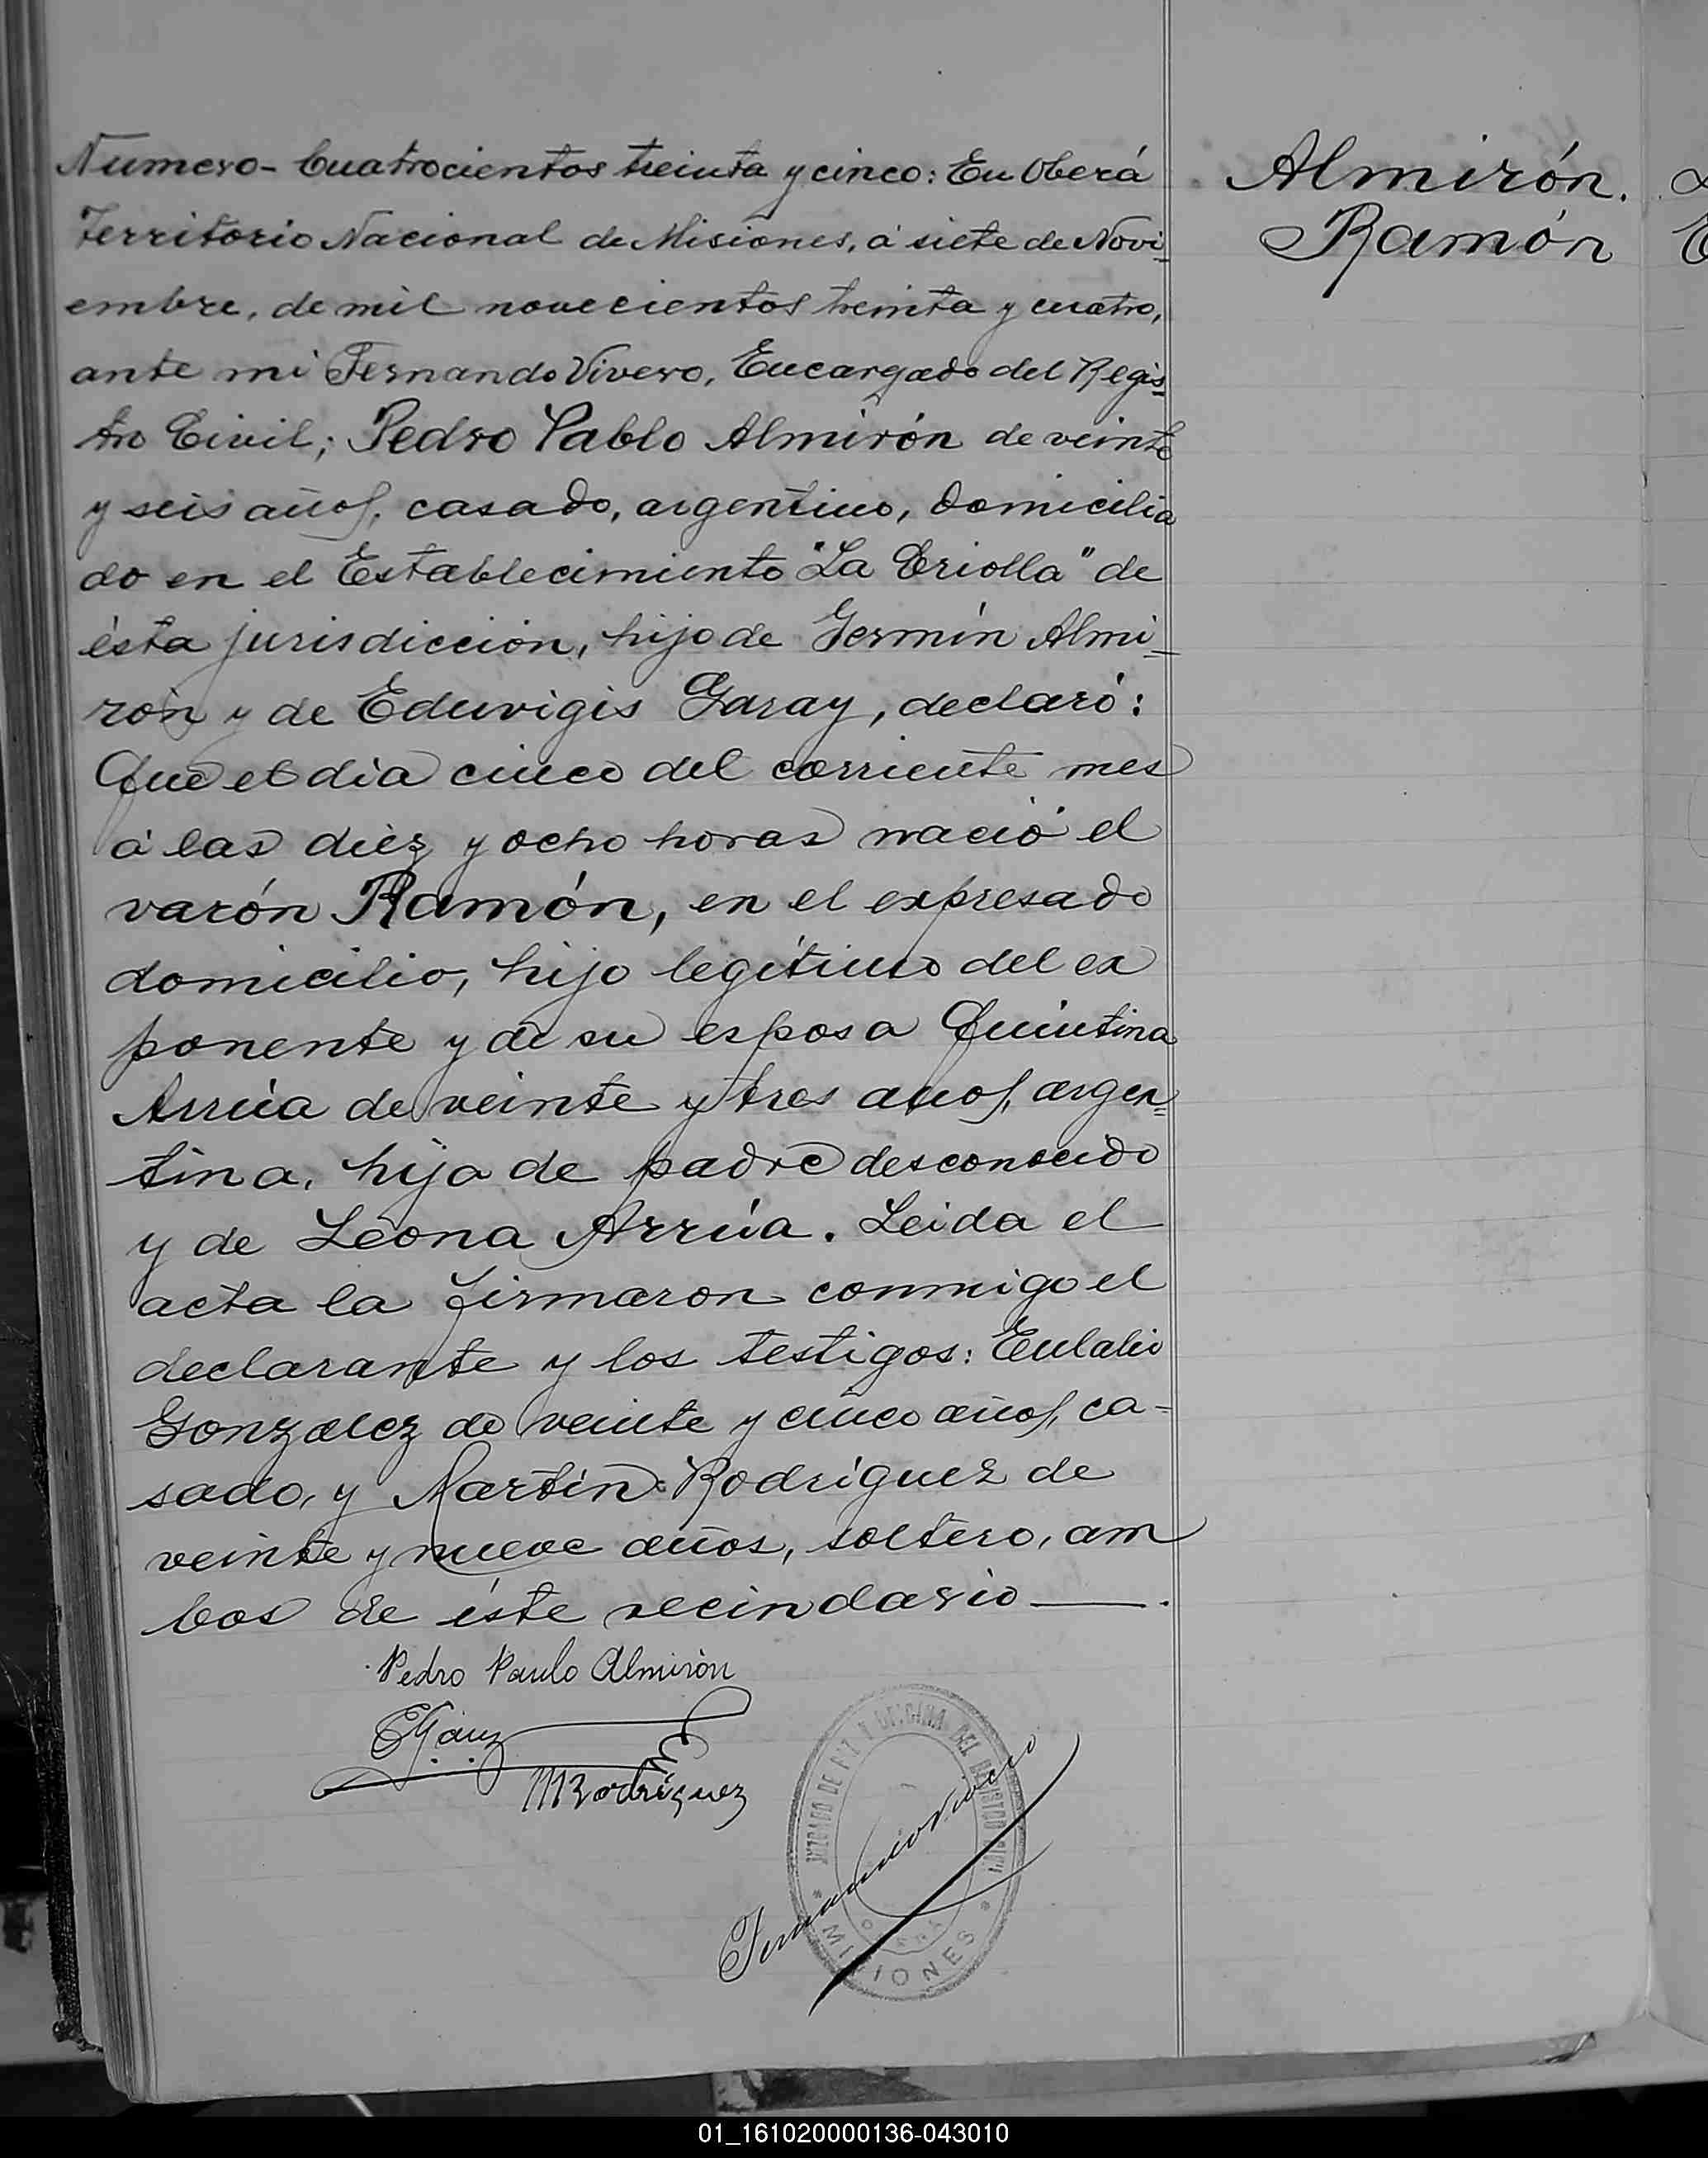 Numero- Cuatrocientos treinta y cinco: En Oberá
Territorio Nacional de Misiones, á siete de Novi_
embre, de mil novecientos treinta y cuatro,
ante mi Fernando Vivero, Encargado del Regis_
tro Civil; Pedro Pablo Almirón de veinte
y seis años, casado, argentino, domicilia
do en el Establecimiento "La Criolla" de
ésta jurisdicción, hijo de Germín Almi_
rón y de Eduvigis Garay, declaró:
Que el dia cinco del corriente mes
á las diez y ocho horas nació el
varón Ramón, en el expresado
domicilio, hijo legítimo del ex
ponente y de su esposa Quintina
Arrúa de veinte y tres años, argen=
tina, hija de padre desconocido
y de Leona Arrúa. Leida el
acta la firmaron conmigo el
declarante y los testigos: Eulalio
Gonzalez de veinte y cinco años, ca-
sado, y Martín Rodriguez de
veinte y nueve años, soltero, am
bos de éste vecindario ____.
Almirón.
Ramón
Pedro Paulo Almirón
MRodríguez
Fernando Vivero
JUZGADO DE PAZ Y OFICINA DEL REGISTRO CIVIL
* MISIONES *
01_161020000136-043010